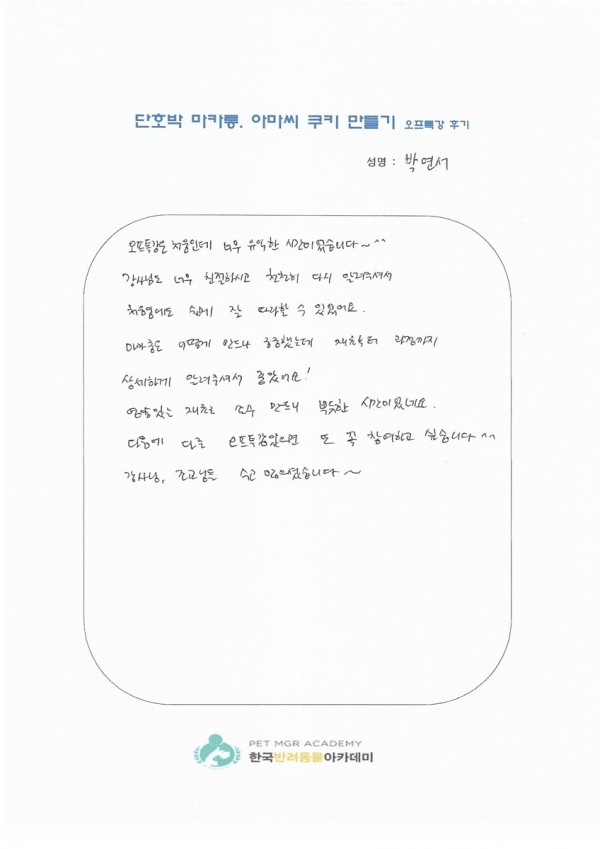 단호박 마카롱. 아마씨 쿠키 만들기 오프특강 후기
성명 : 박연서
오프특강은 처음인데 너무 유익한 시간이었습니다~^^
강사님도 너무 친절하시고 천천히 다시 알려주셔서
처음임에도 쉽게 잘 따라할 수 있었어요.
마카롱도 어떻게 만드나 궁금했는데 재료부터 과정까지
상세하게 알려주셔서 좋았어요!
영양있는 재료로 손수 만드니 뿌듯한 시간이였네요.
다음에 다른 오프특강있으면 또 꼭 참여하고 싶습니다^^
강사님, 조교님들 수고 많으셨습니다~
PET MGR ACADEMY
한국반려동물아카데미